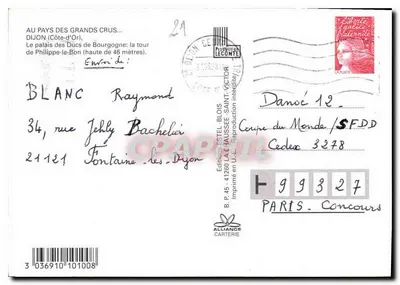 AU PAYS DES GRANDS CRUS...
DIJON (Côte-d'Or),
Le palais des Ducs de Bourgogne: la tour
de Philippe-le-Bon (haute de 46 mètres).
Envoi de:
BLANC Raymond
34, rue Jehly Bachelier
21121 Fontaine-les-Dijon
3 036910 101008
21
B. P. 45 - 41260 LA CHAUSSÉE-SAINT-VICTOR
Imprimé en U.E. Reproduction interdite
ALLIANCE
CARTERIE
Liberté
égalité
fraternité
Danoé 12.
Coupe du Monde/SFDD
Cedex 3278
99327
PARIS. Concours